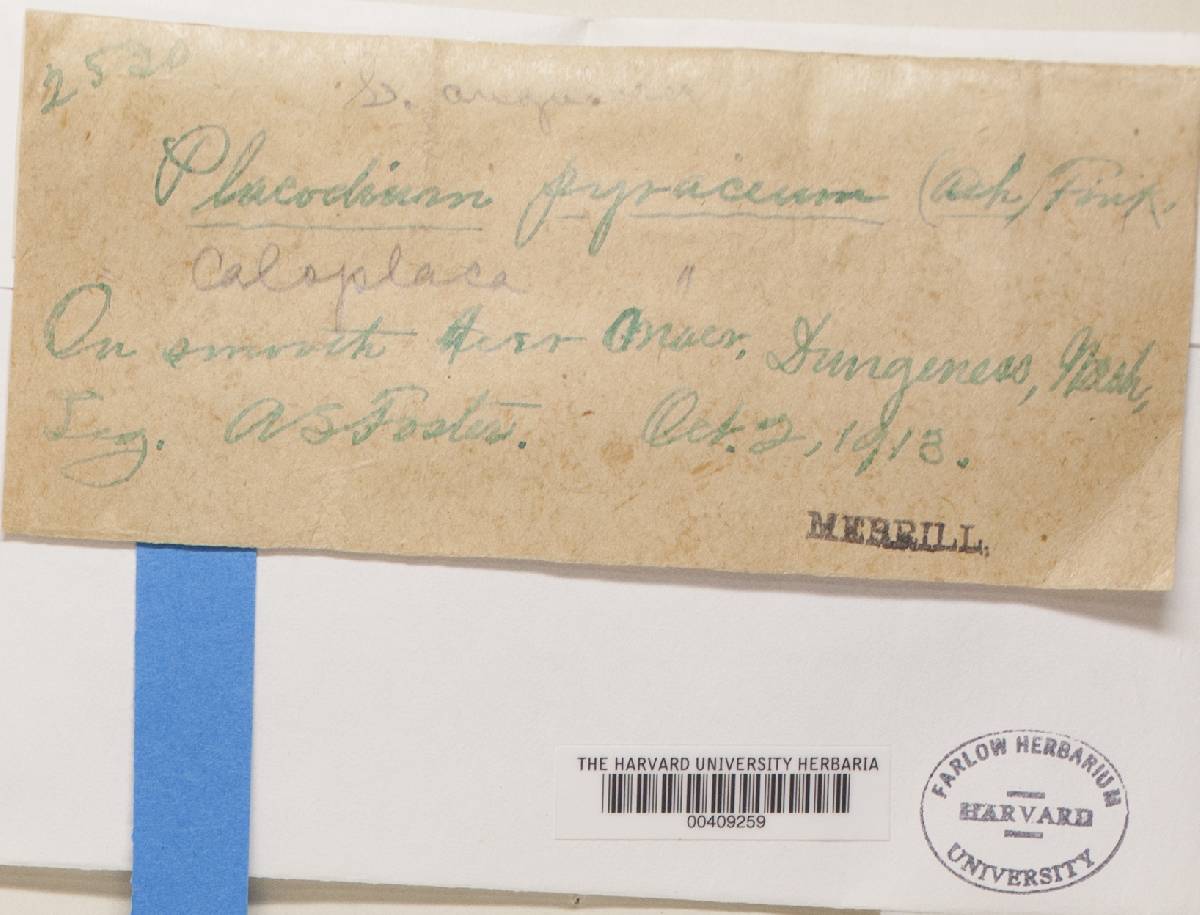 2520
Placodium pyraceum (Ach) Fink.
Caloplaca "
On smooth Acer macr. Dungeness, Wash,
Leg. A S Foster. Oct. 2, 1913.
MERRILL.
THE HARVARD UNIVERSITY HERBARIA
00409259
FARLOW HERBARIUM
HARVARD
UNIVERSITY